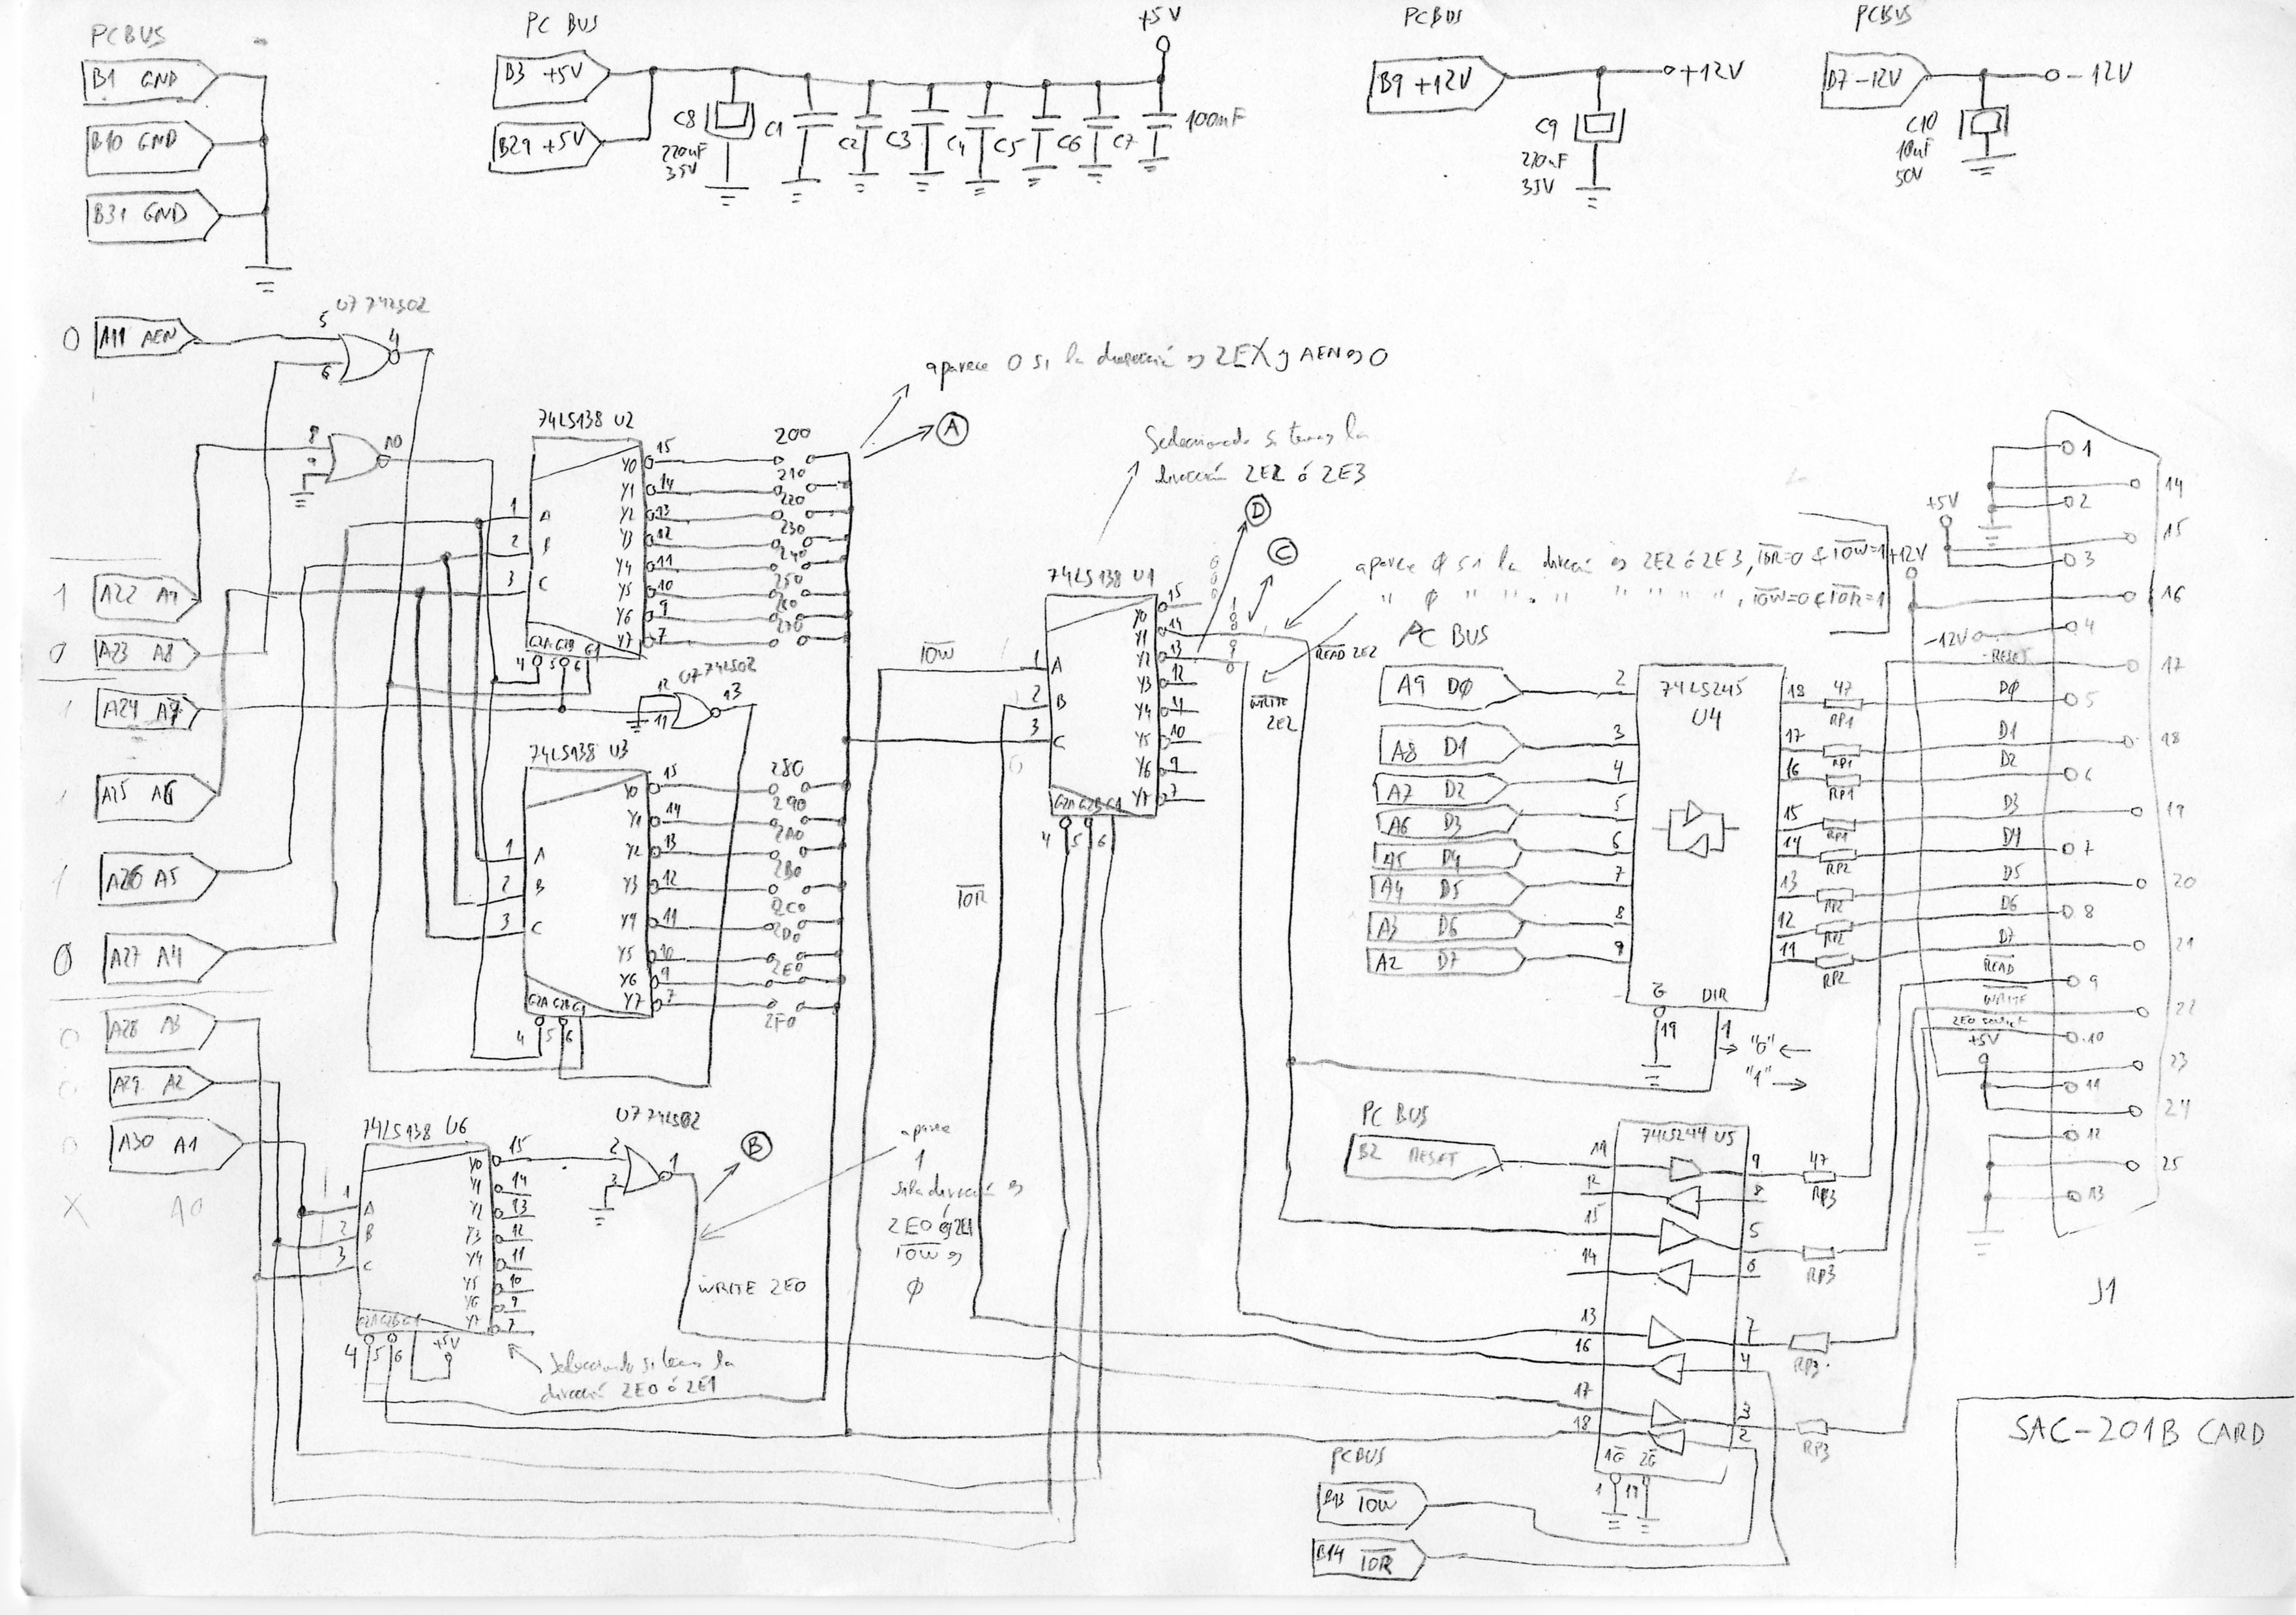 PC BUS
B1 GND
B10 GND
B31 GND
PC BUS
B3 +5V
B29 +5V
C8
220uF
35V
C1
C2
C3
C4
C5
C6
C7
100nF
+5V
PC BUS
B9 +12V
+12V
C9
220uF
35V
PC BUS
B7 -12V
-12V
C10
10uF
50V
U7 74LS02
0 A11 AEN
5
6
4
8
9
10
1 A22 A9
0 A23 A8
1 A24 A7
1 A25 A6
1 A26 A5
0 A27 A4
0 A28 A3
0 A29 A2
0 A30 A1
X A0
74LS138 U2
1 A
2 B
3 C
Y0 15 200
Y1 14 210
Y2 13 220
Y3 12 230
Y4 11 240
Y5 10 250
Y6 9 260
Y7 7 270
G2A G2B G1
4 5 6
U7 74LS02
12
11
13
74LS138 U3
1 A
2 B
3 C
Y0 15 280
Y1 14 290
Y2 13 2A0
Y3 12 2B0
Y4 11 2C0
Y5 10 2D0
Y6 9 2E0
Y7 7 2F0
G2A G2B G1
4 5 6
74LS138 U6
1 A
2 B
3 C
Y0 15
Y1 14
Y2 13
Y3 12
Y4 11
Y5 10
Y6 9
Y7 7
G2A G2B G1
4 5 6
+5V
U7 74LS02
2
3
1
B
WRITE 2E0
aparece
1
si la dirección es
2E0 ó 2E1
IOW es
0
Seleccionado si tenemos la
dirección 2E0 ó 2E1
aparece 0 si la dirección es 2EX y AEN es 0
A
Seleccionado si tenemos la
dirección 2E2 ó 2E3
D
C
aparece 0 si la dirección es 2E2 ó 2E3, IOR=0 & IOW=1
" 0 " " " " " " " , IOW=0 & IOR=1
74LS138 U1
IOW
IOR
1 A
2 B
3 C
Y0 15
Y1 14
Y2 13
Y3 12
Y4 11
Y5 10
Y6 9
Y7 7
G2A G2B G1
4 5 6
READ 2E2
WRITE
2E2
PC BUS
A9 D0
A8 D1
A7 D2
A6 D3
A5 D4
A4 D5
A3 D6
A2 D7
74LS245
U4
2
3
4
5
6
7
8
9
18 47 RP1
17 RP1
16 RP1
15 RP1
14 RP2
13 RP2
12 RP2
11 RP2
G DIR
19 1
→ "0" ←
"1" →
PC BUS
B2 RESET
74LS244 U5
12
15
14
13
16
17
18
9
8
5
6
7
4
3
2
47
RP3
RP3
RP3
RP3
1G 2G
1 19
PC BUS
B13 IOW
B14 IOR
+5V
+12V
-12V
RESET
D0
D1
D2
D3
D4
D5
D6
D7
READ
WRITE
+5V
1
14
2
15
3
16
4
17
5
18
6
19
7
20
8
21
9
22
10
23
11
24
12
25
13
J1
SAC-201B CARD